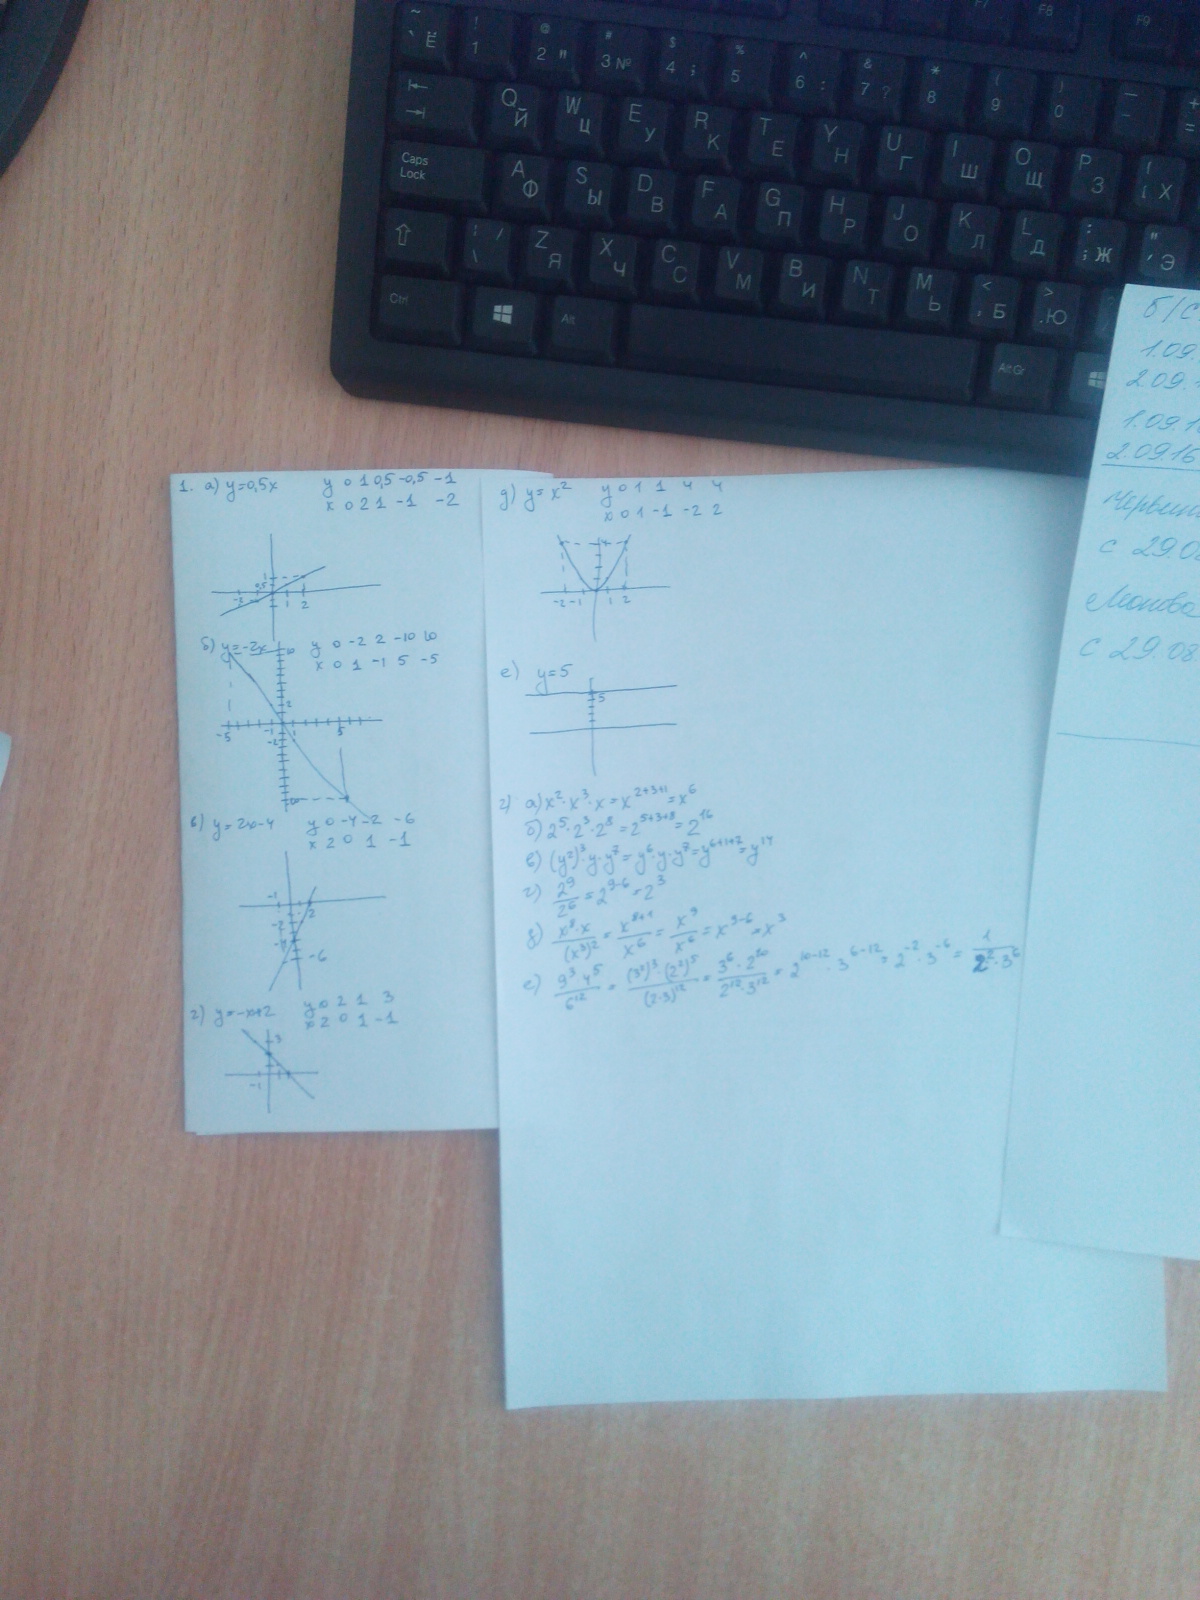 ~ ` Ё
! 1
@ 2 "
# 3 №
$ 4 ;
% 5
^ 6 :
& 7 ?
* 8
( 9
) 0
F7 F8 F9
Q Й W Ц E У R К T Е Y Н U Г I Ш O Щ P З { [ Х
Caps Lock
A Ф S Ы D В F А G П H Р J О K Л L Д : ; Ж " ' Э
Z Я X Ч C С V М B И N Т M Ь < , Б > . Ю
Ctrl Alt Alt Gr
1. а) y=0,5x y 0 1 0,5 -0,5 -1
x 0 2 1 -1 -2
1
0,5
1 2
б) y=-2x y 0 -2 2 -10 10
x 0 1 -1 5 -5
10
2
-5 -1 1 5
-2
в) y=2x-4 y 0 -4 -2 -6
x 2 0 1 -1
-1 2
-2
-4
-6
г) y=-x+2 y 0 2 1 3
x 2 0 1 -1
3
-1
д) y=x² y 0 1 1 4 4
x 0 1 -1 -2 2
4
-2 -1 1 2
е) y=5
5
2) а) x²·x³·x=x²⁺³⁺¹=x⁶
б) 2⁵·2³·2⁸=2⁵⁺³⁺⁸=2¹⁶
в) (y²)³·y·y⁷=y⁶·y·y⁷=y⁶⁺¹⁺⁷=y¹⁴
г) 2⁹/2⁶=2⁹⁻⁶=2³
д) x⁸·x/(x³)²=x⁸⁺¹/x⁶=x⁹/x⁶=x⁹⁻⁶=x³
е) 9³·4⁵/6¹²=(3²)³·(2²)⁵/(2·3)¹²=3⁶·2¹⁰/2¹²·3¹²=2¹⁰⁻¹²·3⁶⁻¹²=2⁻²·3⁻⁶=1/2²·3⁶
б/с
1.09.
2.09.
1.09.1
2.09.16
с 29.0
с 29.08